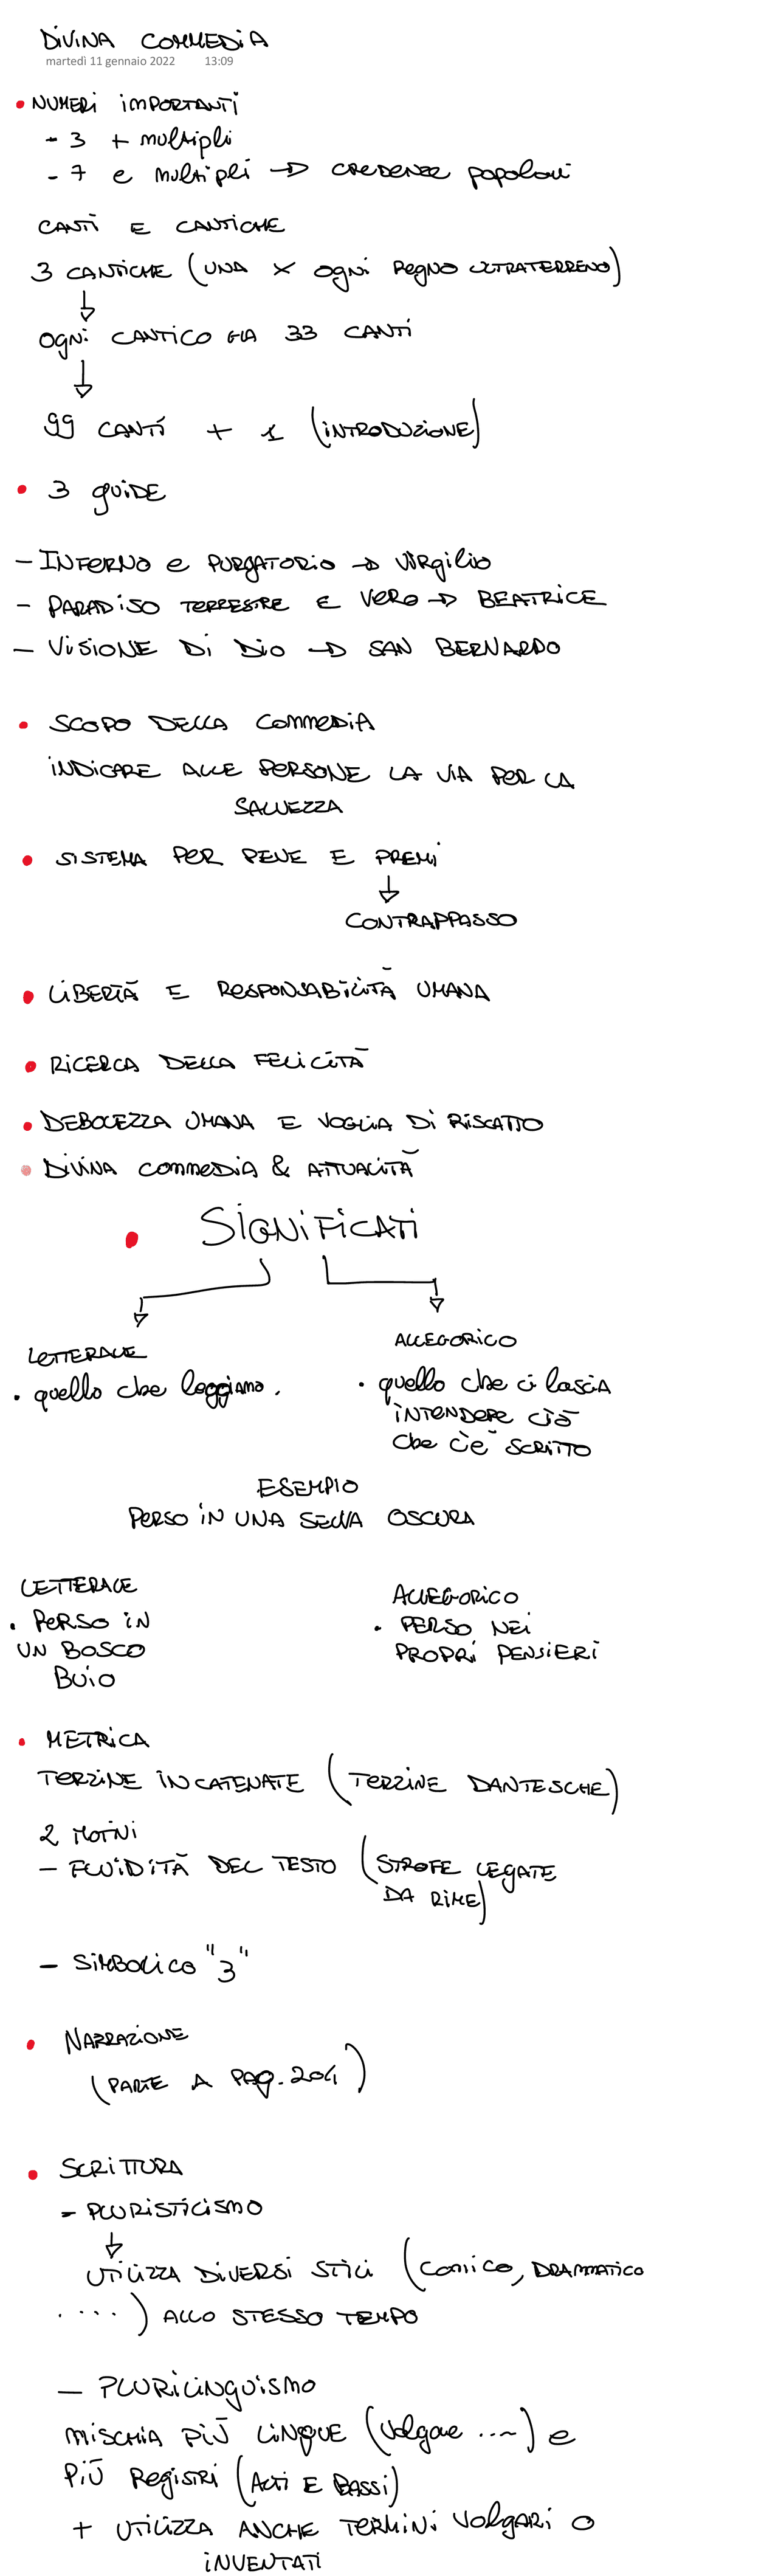 DIVINA COMMEDIA
martedì 11 gennaio 2022 13:09
• NUMERI IMPORTANTI
- 3 + multipli
- 7 e multipli → CREDENZE popolari
CANTI E CANTICHE
3 CANTICHE (UNA X OGNI REGNO ULTRATERRENO)
↓
OGNI CANTICO HA 33 CANTI
↓
99 CANTI + 1 (INTRODUZIONE)
• 3 GUIDE
- INFERNO e PURGATORIO → VIRGILIO
- PARADISO TERRESTRE E VERO → BEATRICE
- VISIONE DI DIO → SAN BERNARDO
• SCOPO DELLA COMMEDIA
INDICARE ALLE PERSONE LA VIA PER LA
SALVEZZA
• SISTEMA PER PENE E PREMI
↓
CONTRAPPASSO
• LIBERTÀ E RESPONSABILITÀ UMANA
• RICERCA DELLA FELICITÀ
• DEBOLEZZA UMANA E VOGLIA DI RISCATTO
• DIVINA COMMEDIA & ATTUALITÀ
• SIGNIFICATI
LETTERALE ALLEGORICO
• quello che leggiamo. • quello che ci lascia
INTENDERE CIÒ
che c'è SCRITTO
ESEMPIO
PERSO IN UNA SELVA OSCURA
LETTERALE ALLEGORICO
• PERSO IN • PERSO NEI
UN BOSCO PROPRI PENSIERI
BUIO
• METRICA
TERZINE INCATENATE (TERZINE DANTESCHE)
2 MOTIVI
- FLUIDITÀ DEL TESTO (STROFE LEGATE
DA RIME)
- SIMBOLICO "3"
• NARRAZIONE
(PARTE A PAG. 204)
• SCRITTURA
- PLURISTICISMO
↓
UTILIZZA DIVERSI STILI (COMICO, DRAMMATICO
....) ALLO STESSO TEMPO
- PLURILINGUISMO
MISCHIA PIÙ LINGUE (Volgare ....) e
PIÙ REGISTRI (ALTI E BASSI)
+ UTILIZZA ANCHE TERMINI VOLGARI O
INVENTATI